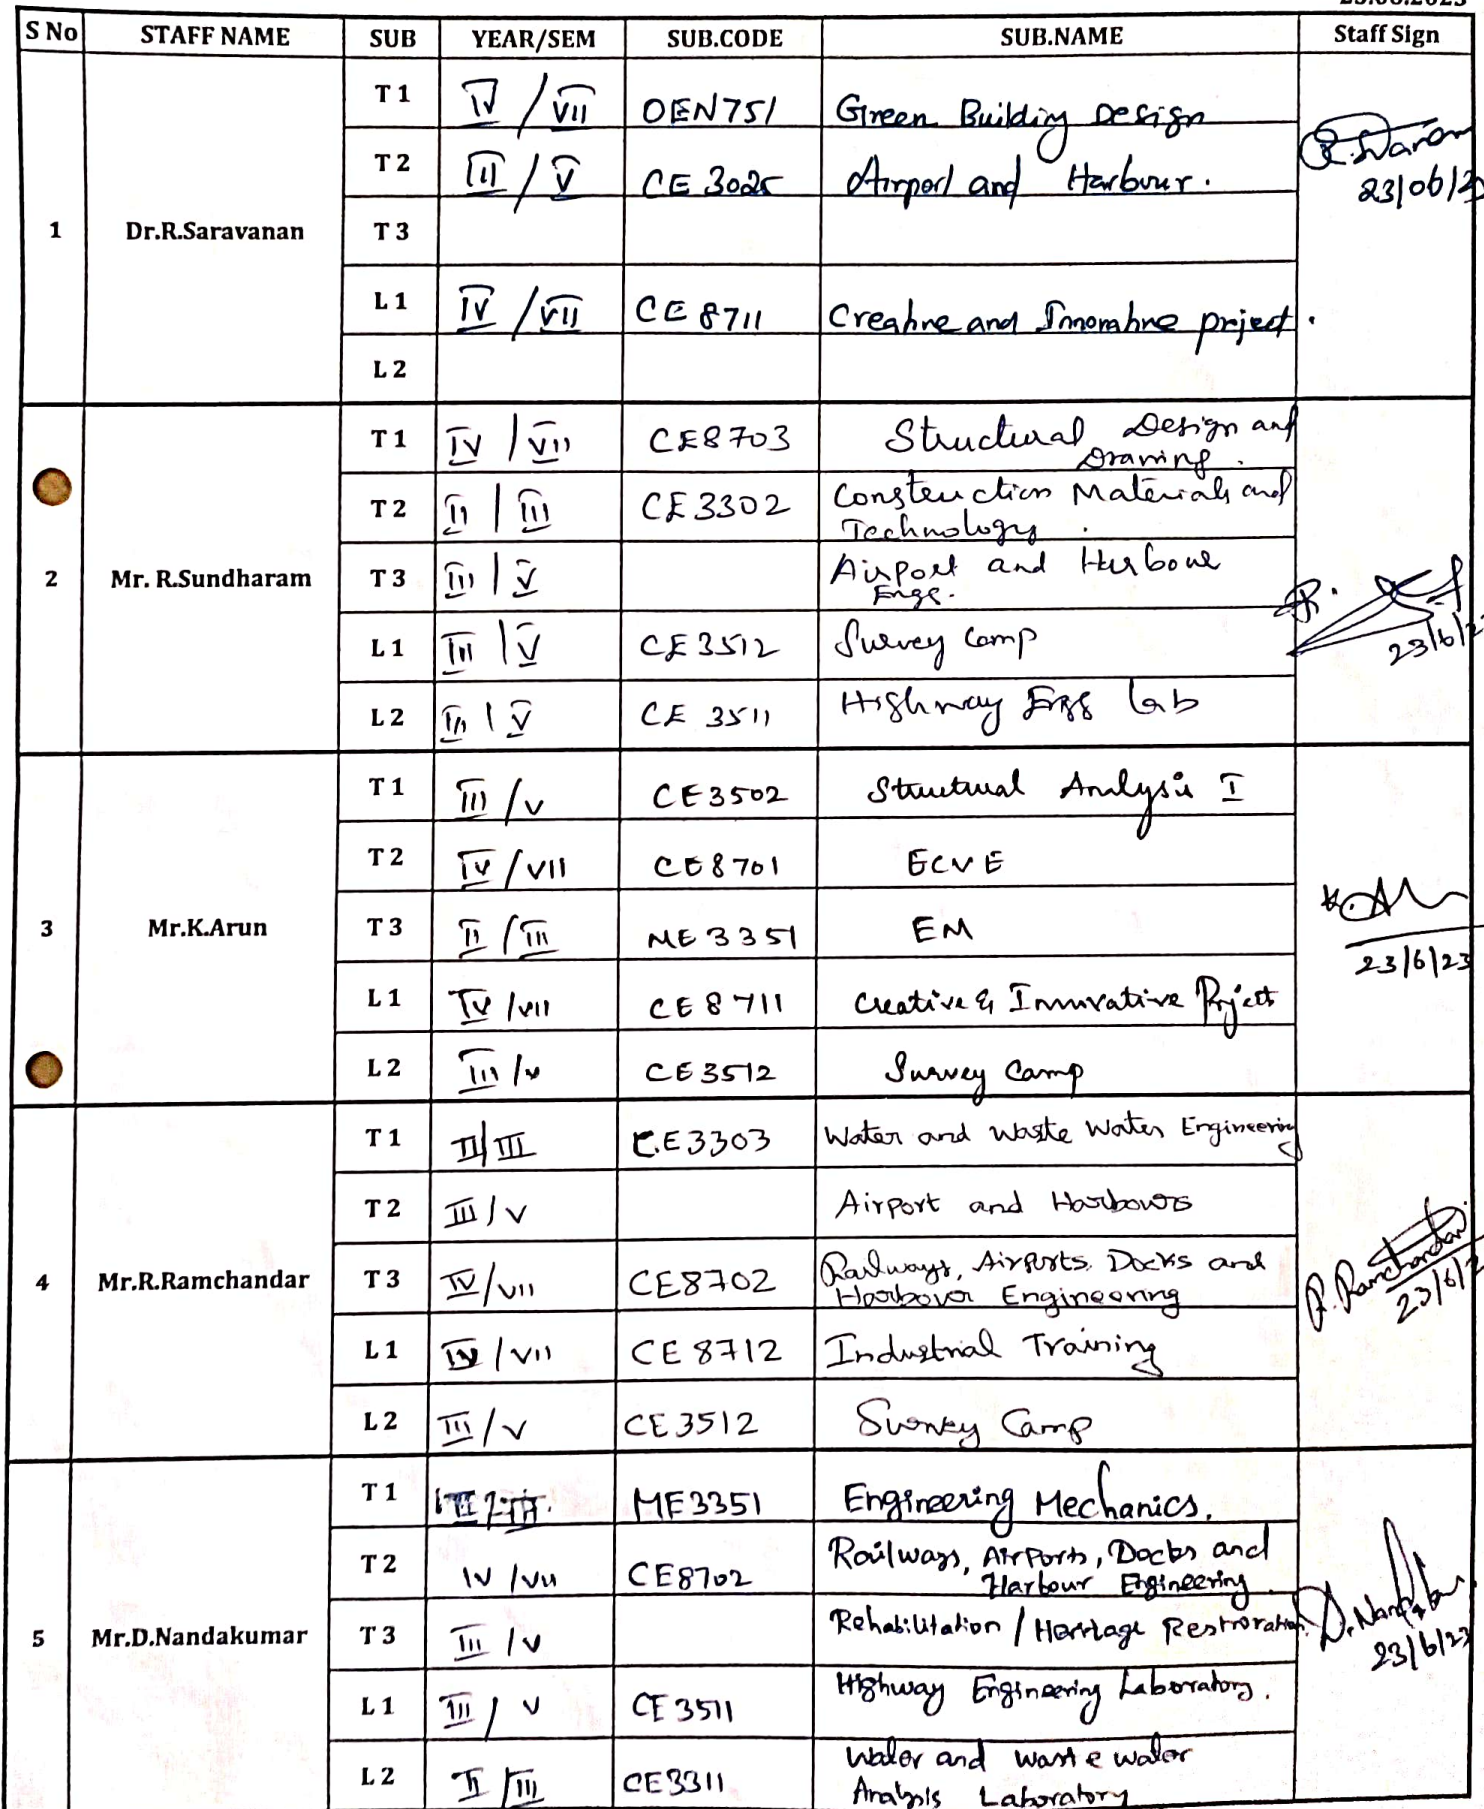 S No STAFF NAME SUB YEAR/SEM SUB.CODE SUB.NAME Staff Sign
1 Dr.R.Saravanan
T 1 IV / VII OEN751 Green Building Design
T 2 III / V CE 3025 Airport and Harbour.
T 3
L 1 IV / VII CE 8711 Creative and Innovative project.
L 2
23/06/2
2 Mr. R.Sundharam
T 1 IV / VII CE8703 Structural Design and
Drawing.
T 2 II / III CE3302 Construction Materials and
Technology.
T 3 III / V Airport and Harbour
Engg.
L 1 III / V CE3512 Survey Camp
L 2 III / V CE 3511 Highway Engg Lab
23/6/2
3 Mr.K.Arun
T 1 III / V CE3502 Structural Analysis I
T 2 IV / VII CE8701 ECVE
T 3 II / III ME3351 EM
L 1 IV / VII CE8711 Creative & Innovative Project
L 2 III / V CE3512 Survey Camp
23/6/23
4 Mr.R.Ramchandar
T 1 II/III CE3303 Water and Waste Water Engineering
T 2 III / V Airport and Harbours
T 3 IV / VII CE8702 Railways, Airports, Docks and
Harbour Engineering
L 1 IV / VII CE8712 Industrial Training
L 2 III / V CE3512 Survey Camp
R. Ramchandar
23/6/2
5 Mr.D.Nandakumar
T 1 II / III ME3351 Engineering Mechanics.
T 2 IV / VII CE8702 Railways, Airports, Docks and
Harbour Engineering.
T 3 III / V Rehabilitation / Heritage Restroration
L 1 III / V CE3511 Highway Engineering Laboratory.
L 2 II / III CE3311 Water and waste water
Analysis Laboratory
D. Nandakumar
23/6/23